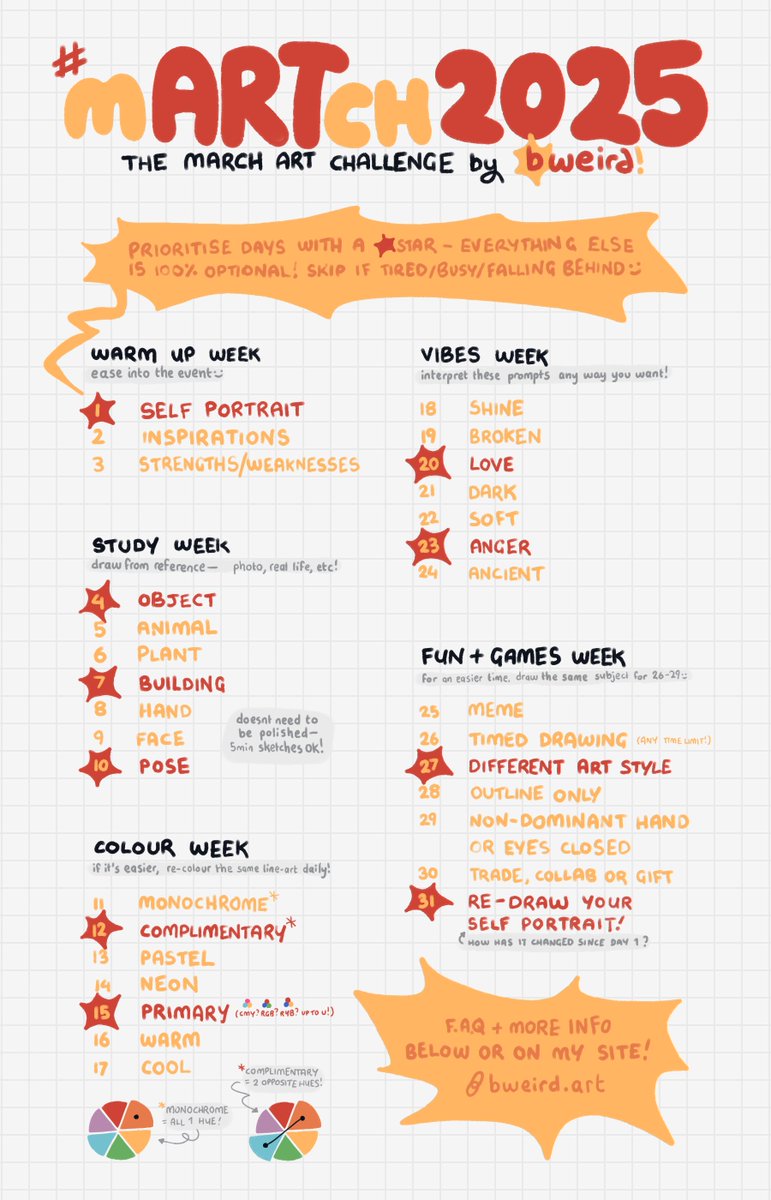 #mARTch2025
THE MARCH ART CHALLENGE by bweird!
PRIORITISE DAYS WITH A STAR - EVERYTHING ELSE
IS 100% OPTIONAL! SKIP IF TIRED/BUSY/FALLING BEHIND
WARM UP WEEK
ease into the event
1 SELF PORTRAIT
2 INSPIRATIONS
3 STRENGTHS/WEAKNESSES
STUDY WEEK
draw from reference — photo, real life, etc!
4 OBJECT
5 ANIMAL
6 PLANT
7 BUILDING
8 HAND
9 FACE
10 POSE
doesnt need to
be polished—
5min sketches OK!
COLOUR WEEK
if it's easier, re-colour the same line-art daily!
11 MONOCHROME*
12 COMPLIMENTARY*
13 PASTEL
14 NEON
15 PRIMARY (CMY? RGB? RYB? UP TO U!)
16 WARM
17 COOL
*MONOCHROME
= ALL 1 HUE!
*COMPLIMENTARY
= 2 OPPOSITE HUES!
VIBES WEEK
interpret these prompts any way you want!
18 SHINE
19 BROKEN
20 LOVE
21 DARK
22 SOFT
23 ANGER
24 ANCIENT
FUN + GAMES WEEK
for an easier time, draw the same subject for 26-29
25 MEME
26 TIMED DRAWING (ANY TIME LIMIT!)
27 DIFFERENT ART STYLE
28 OUTLINE ONLY
29 NON-DOMINANT HAND
OR EYES CLOSED
30 TRADE, COLLAB OR GIFT
31 RE-DRAW YOUR
SELF PORTRAIT!
HOW HAS IT CHANGED SINCE DAY 1?
F.A.Q + MORE INFO
BELOW OR ON MY SITE!
bweird.art